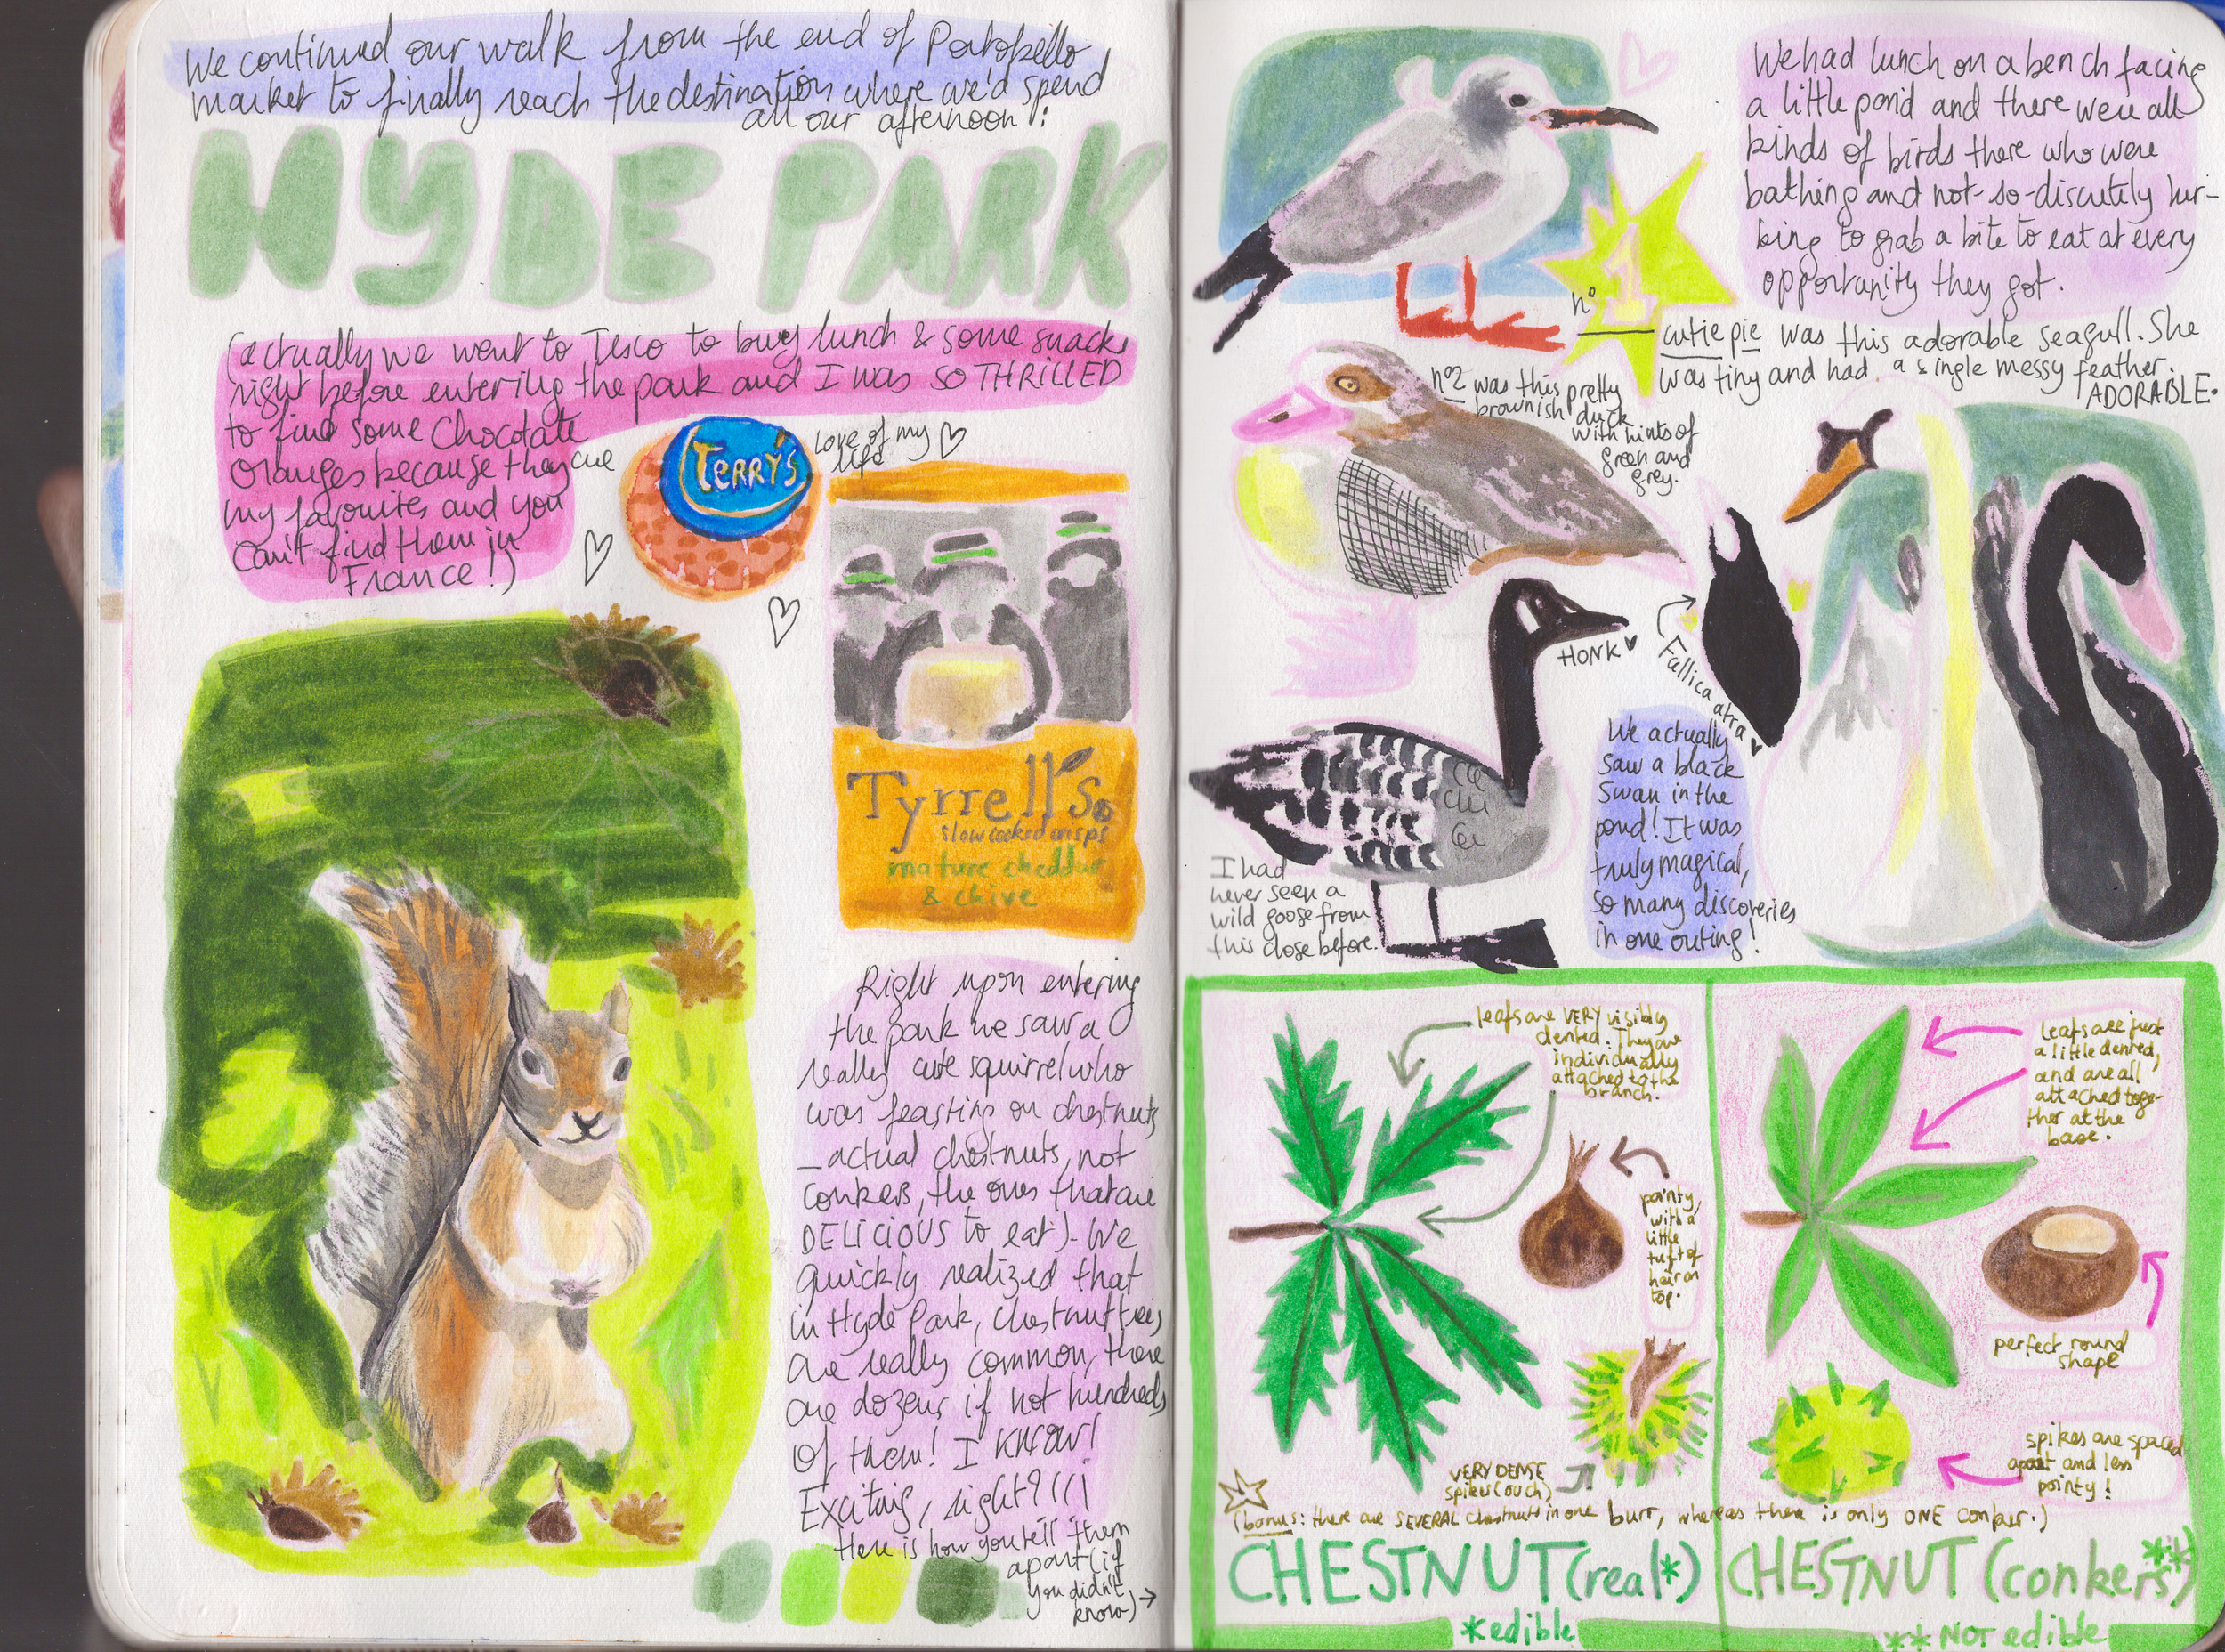 We continued our walk from the end of Portobello
market to finally reach the destination where we'd spend
all our afternoon:
HYDE PARK
(actually we went to Tesco to buy lunch & some snacks
right before entering the park and I was SO THRILLED
to find some Chocolate
Oranges because they are
my favourites and you
can't find them in
France!)
TERRY'S
love of my
life
Tyrrell's
slow cooked crisps
mature cheddar
& chive
Right upon entering
the park we saw a
really cute squirrel who
was feasting on chestnuts
_actual chestnuts, not
conkers, the ones that are
DELICIOUS to eat). We
quickly realized that
in Hyde Park, chestnut trees
are really common, there
are dozens if not hundreds
of them! I KNOW!
Exciting, right?!!!
Here is how you tell them
apart (if
you didn't
know) →
We had lunch on a bench facing
a little pond and there were all
kinds of birds there who were
bathing and not-so-discretely lur-
king to grab a bite to eat at every
opportunity they got.
n° 1
cutie pie was this adorable seagull. She
was tiny and had a single messy feather.
ADORABLE.
n°2 was this pretty
brownish duck
with hints of
green and
grey.
HONK
Fallica atra
We actually
saw a black
swan in the
pond! It was
truly magical,
so many discoveries
in one outing!
I had
never seen a
wild goose from
this close before.
leafs are VERY visibly
dented. They are
individually
attached to the
branch.
pointy,
with a
little
tuft of
hair on
top.
VERY DENSE
spikes (ouch)
leafs are just
a little dented,
and are all
attached toge-
ther at the
base.
perfect round
shape
spikes are spaced
apart and less
pointy!
(bonus: there are SEVERAL chestnuts in one burr, whereas there is only ONE conker.)
CHESTNUT (real*)
*edible
CHESTNUT (conkers**)
** NOT edible